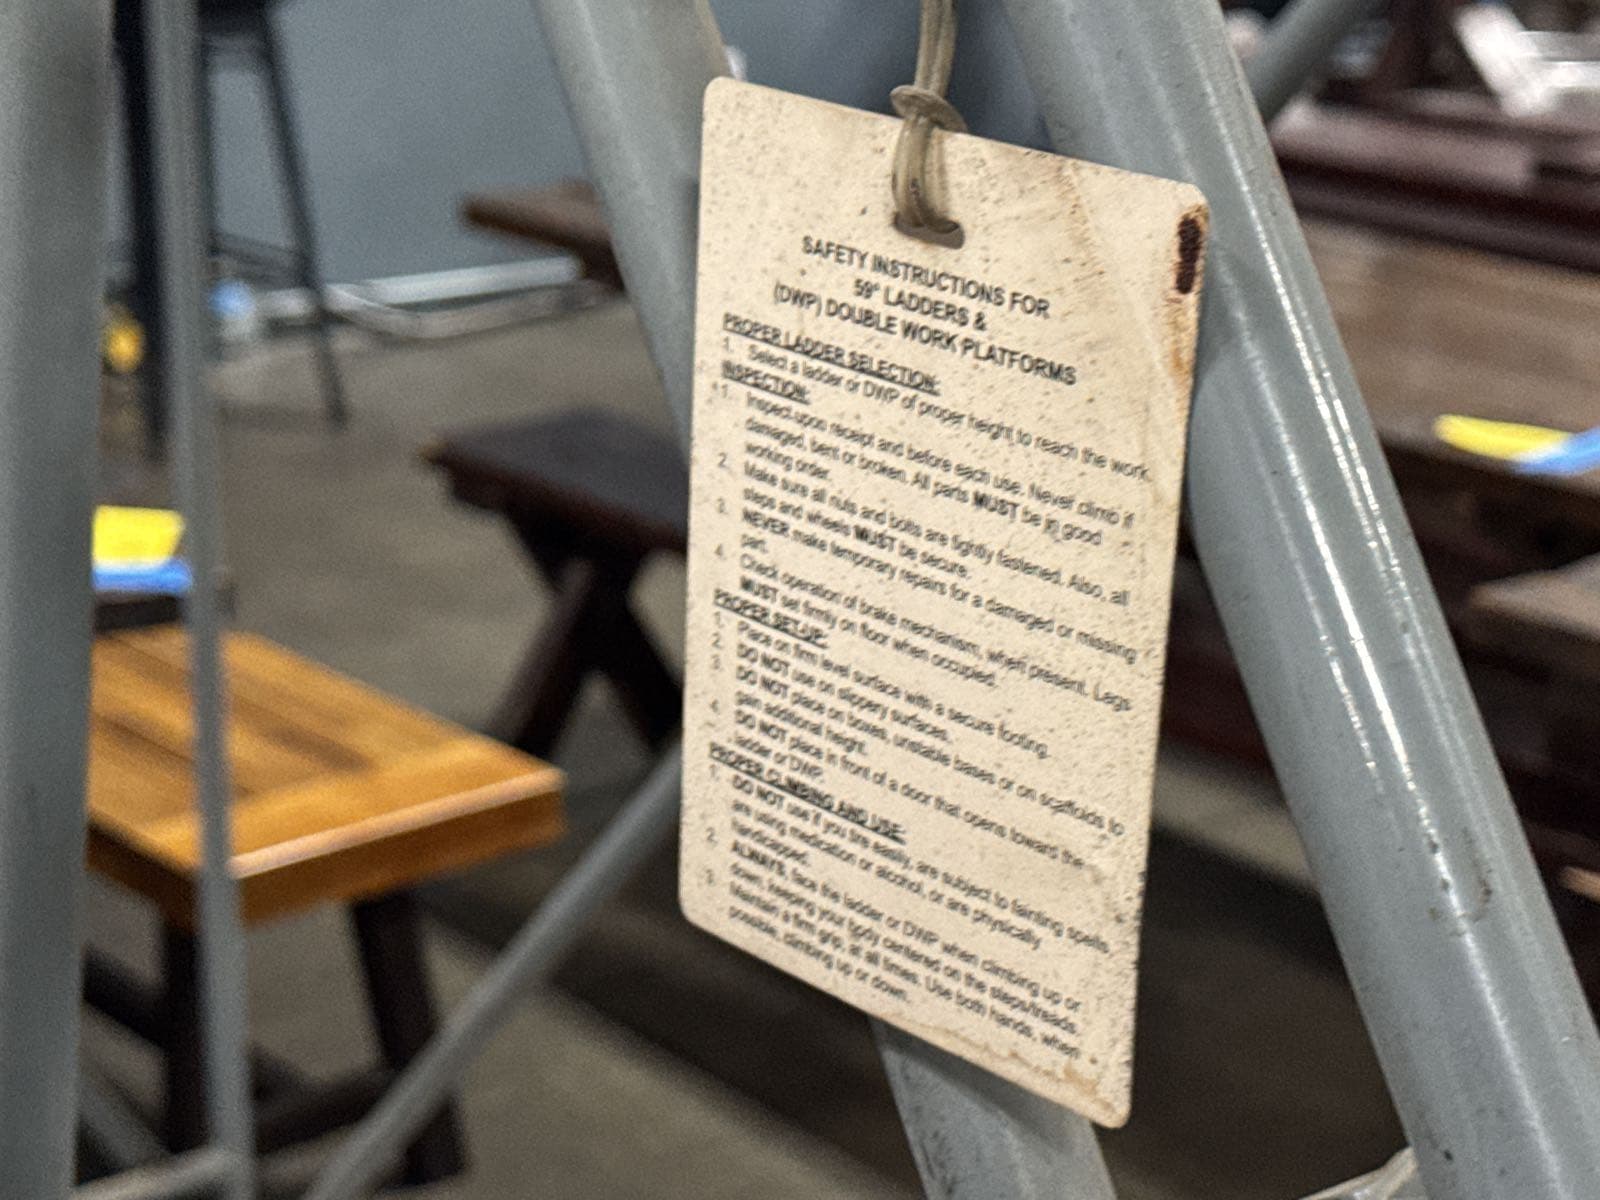 SAFETY INSTRUCTIONS FOR
59° LADDERS &
(DWP) DOUBLE WORK PLATFORMS
PROPER LADDER SELECTION:
1. Select a ladder or DWP of proper height to reach the work.
INSPECTION:
1. Inspect upon receipt and before each use. Never climb if
damaged, bent or broken. All parts MUST be in good
working order.
2. Make sure all nuts and bolts are tightly fastened. Also, all
steps and wheels MUST be secure.
3. NEVER make temporary repairs for a damaged or missing
part.
4. Check operation of brake mechanism, when present. Legs
MUST set firmly on floor when occupied.
PROPER SET-UP:
1. Place on firm level surface with a secure footing.
2. DO NOT use on slippery surfaces.
3. DO NOT place on boxes, unstable bases or on scaffolds to
gain additional height.
4. DO NOT place in front of a door that opens toward the
ladder or DWP.
PROPER CLIMBING AND USE:
1. DO NOT use if you tire easily, are subject to fainting spells,
are using medication or alcohol, or are physically
handicapped.
2. ALWAYS, face the ladder or DWP when climbing up or
down, keeping your body centered on the steps/treads.
3. Maintain a firm grip, at all times. Use both hands, when
possible, climbing up or down.